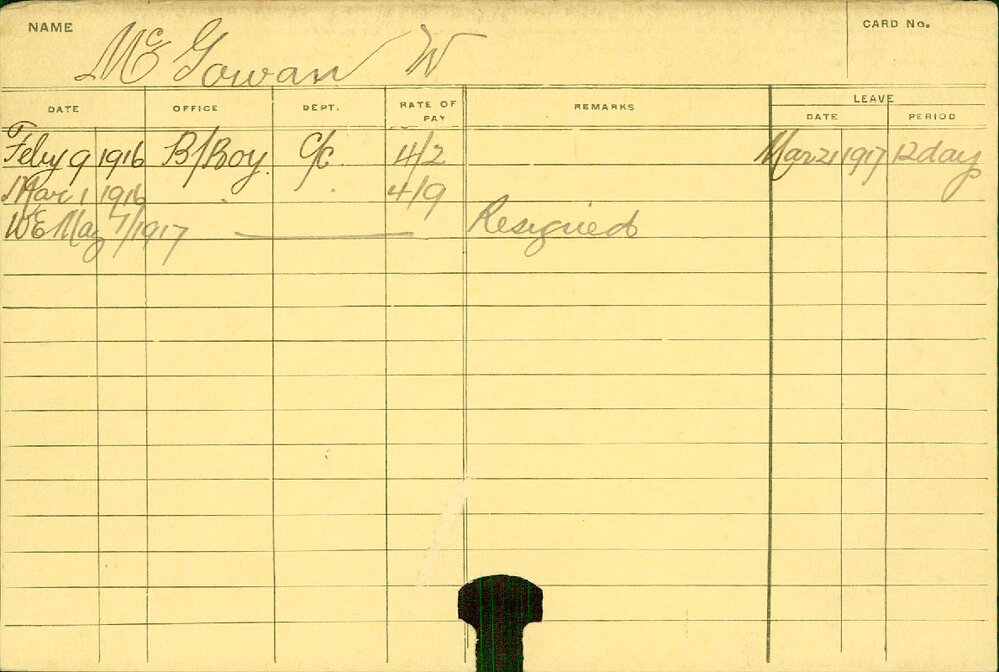 NAME McGowan W CARD No.
DATE OFFICE DEPT. RATE OF PAY REMARKS LEAVE
DATE PERIOD
Feby 9 1916 B/Boy. C/C. 4/2 Mar 21 1917 12 day
Mar 1 1916 " " 4/9
WE May 7/1917 Resigned